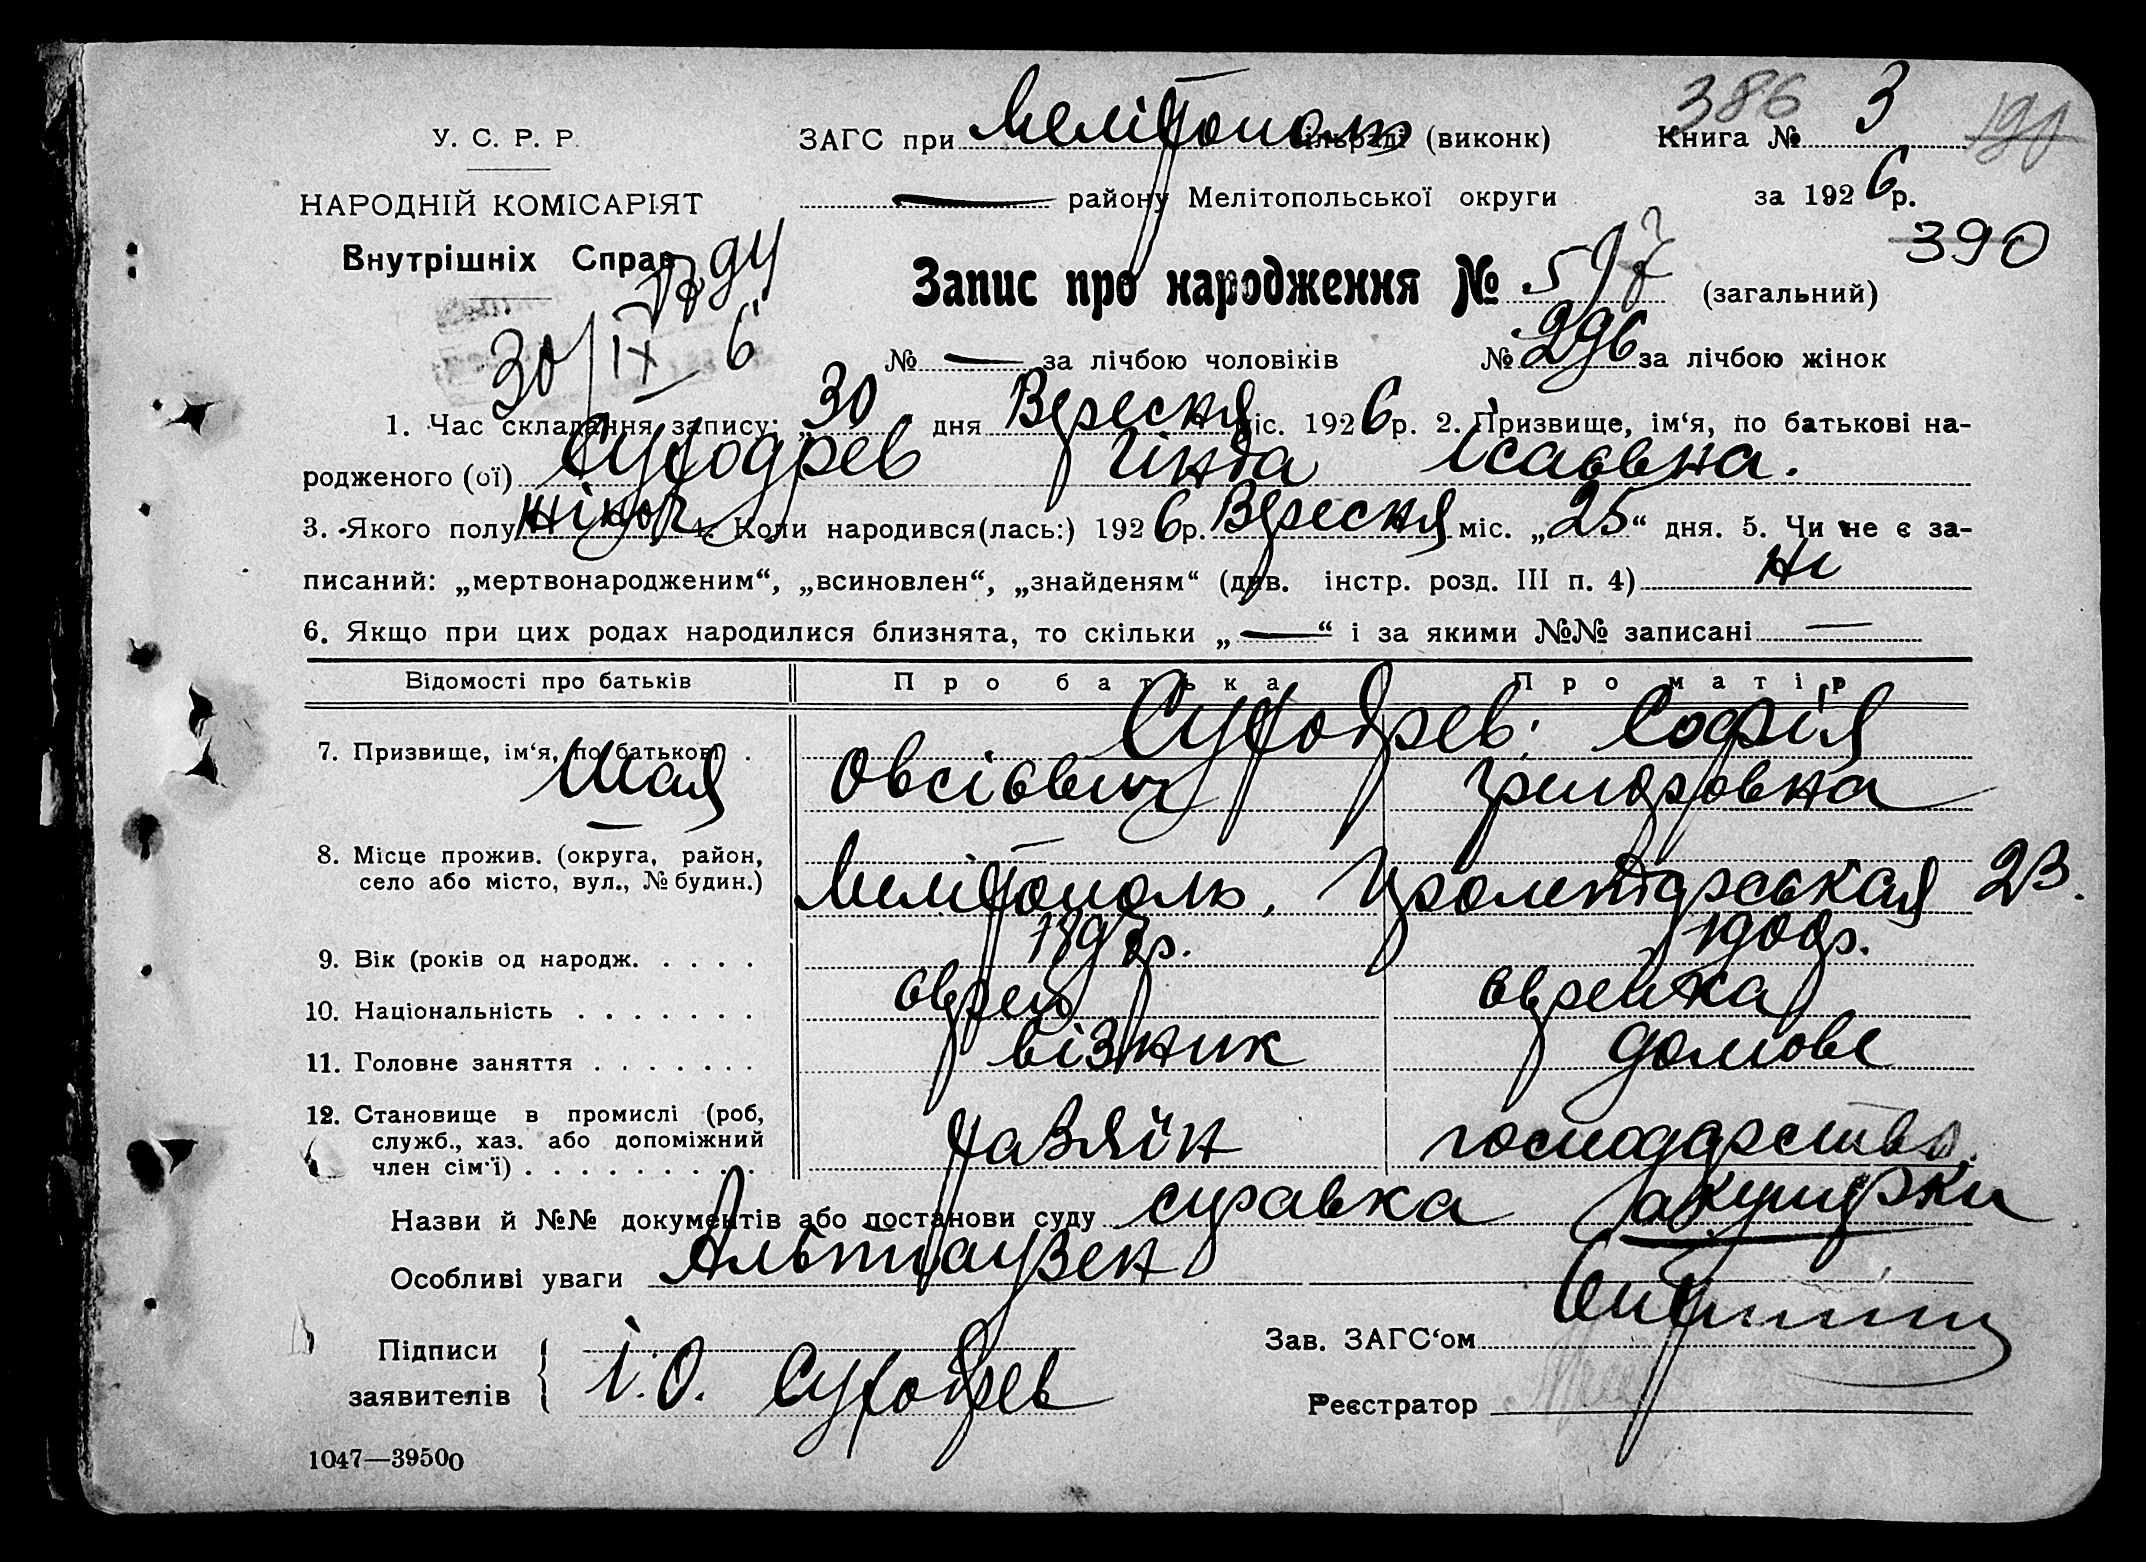 386 3 190
У. С. Р. Р. ЗАГС при Мелітополь сільраді (виконк) Книга №
НАРОДНІЙ КОМІСАРІЯТ району Мелітопольської округи за 1926 р.
390
Внутрішніх Справ
Запис про народження № 597 (загальний)
30/IX 6
№ — за лічбою чоловіків № 296 за лічбою жінок
1. Час складання запису: „30 дня Вересня міс. 1926 р. 2. Призвище, ім‘я, по батькові на-
родженого (ої) Суходрев Гінда Ісаєвна.
3. Якого полу жіноч 4. Коли народився(лась:) 1926 р. Вересня міс. „25“ дня. 5. Чи не є за-
писаний: „мертвонародженим“, „всиновлен“, „знайденям“ (див. інстр. розд. III п. 4) Ні
6. Якщо при цих родах народилися близнята, то скільки „—“ і за якими №№ записані —
Відомості про батьків Про батька Про матір
Суходрев: Софія
7. Призвище, ім‘я, по батькові .
Шая Овсієвич Григоровна
8. Місце прожив. (округа, район,
село або місто, вул., № будин.) Мелітополь, Пролетарськая 23.
9. Вік (років од народж. . . . . 1897 р. 1900 р.
10. Національність . . . . . . . єврей єврейка
11. Головне заняття . . . . . . . візник домове
12. Становище в промислі (роб,
служб., хаз. або допоміжний
член сім‘ї) . . . . . . . . . . хазяїн господарство.
Назви й №№ документів або постанови суду справка акушерки
Особливі уваги Альтгаузен
Зав. ЗАГС‘ом
Підписи
заявителів І. О. Суходрев
Реєстратор
1047—39500